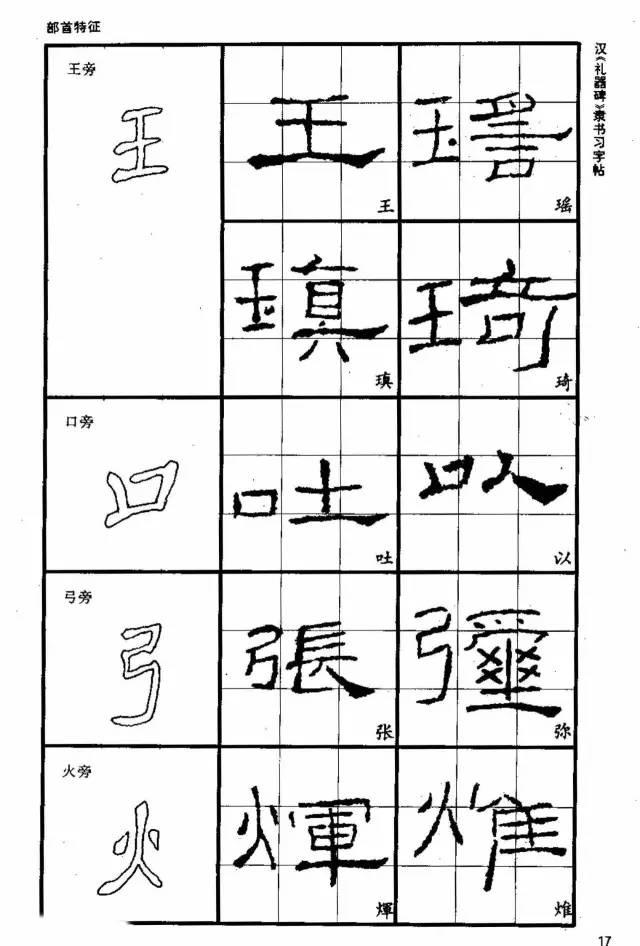 部首特征
汉《礼器碑》隶书习字帖
王旁
王 王 瑤
王 瑶
瑱 琦
瑱 琦
口旁
口 吐 以
吐 以
弓旁
弓 張 彌
张 弥
火旁
火 煇
煇
17